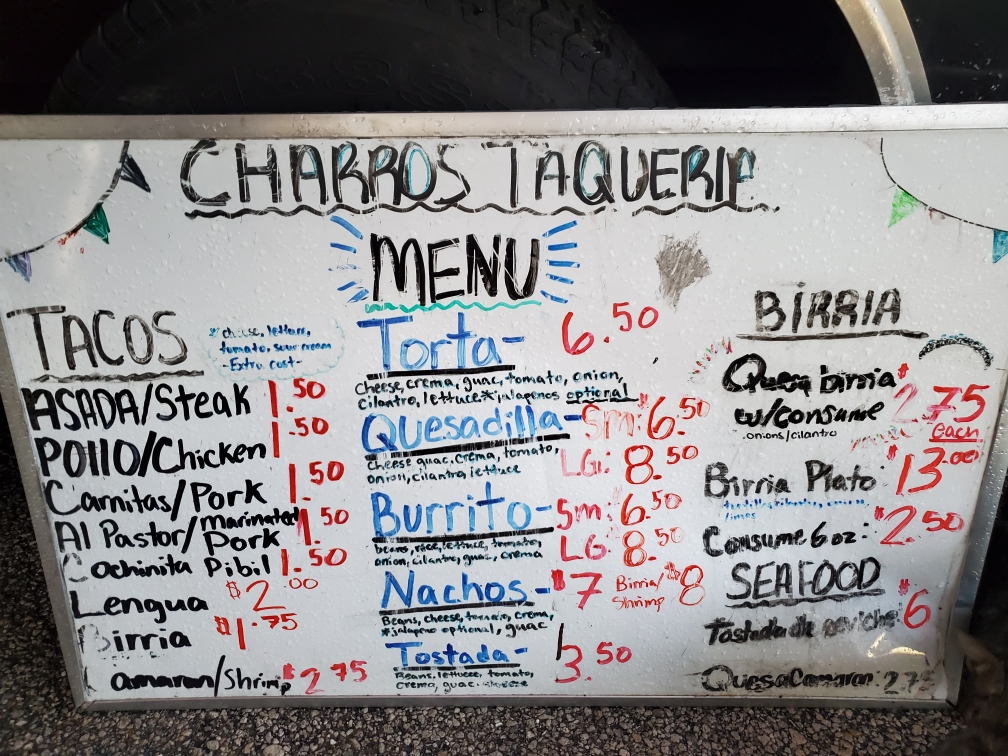 CHARROS TAQUERIA
MENU
TACOS
cheese, lettuce,
tomato, sour cream
-Extra cost-
ASADA/Steak 1.50
POllO/Chicken 1.50
Carnitas/Pork 1.50
Al Pastor/Marinated Pork 1.50
Cochinita Pibil 1.50
Lengua $2.00
Birria $1.75
amaron/Shrimp $2.75
Torta- 6.50
cheese, crema, guac, tomato, onion,
cilantro, lettuce *jalapenos optional
Quesadilla- Sm: 6.50
LG: 8.50
cheese guac, crema, tomato,
onion, cilantro lettuce
Burrito- Sm: 6.50
LG: 8.50
beans, rice, lettuce, tomato,
onion, cilantro, guac, crema
Nachos- $7 Birria/Shrimp $8
Beans, cheese, tomato, crema,
*jalapeno optional, guac
Tostada- 3.50
Beans, lettuce, tomato,
crema, guac, cheese
BIRRIA
Quesa birria $2.75
w/consume each
onions/cilantro
Birria Plato $13.00
limes
Consume 6 oz: $2.50
SEAFOOD
Tostada de ceviche $6
QuesaCamaron: 2.75